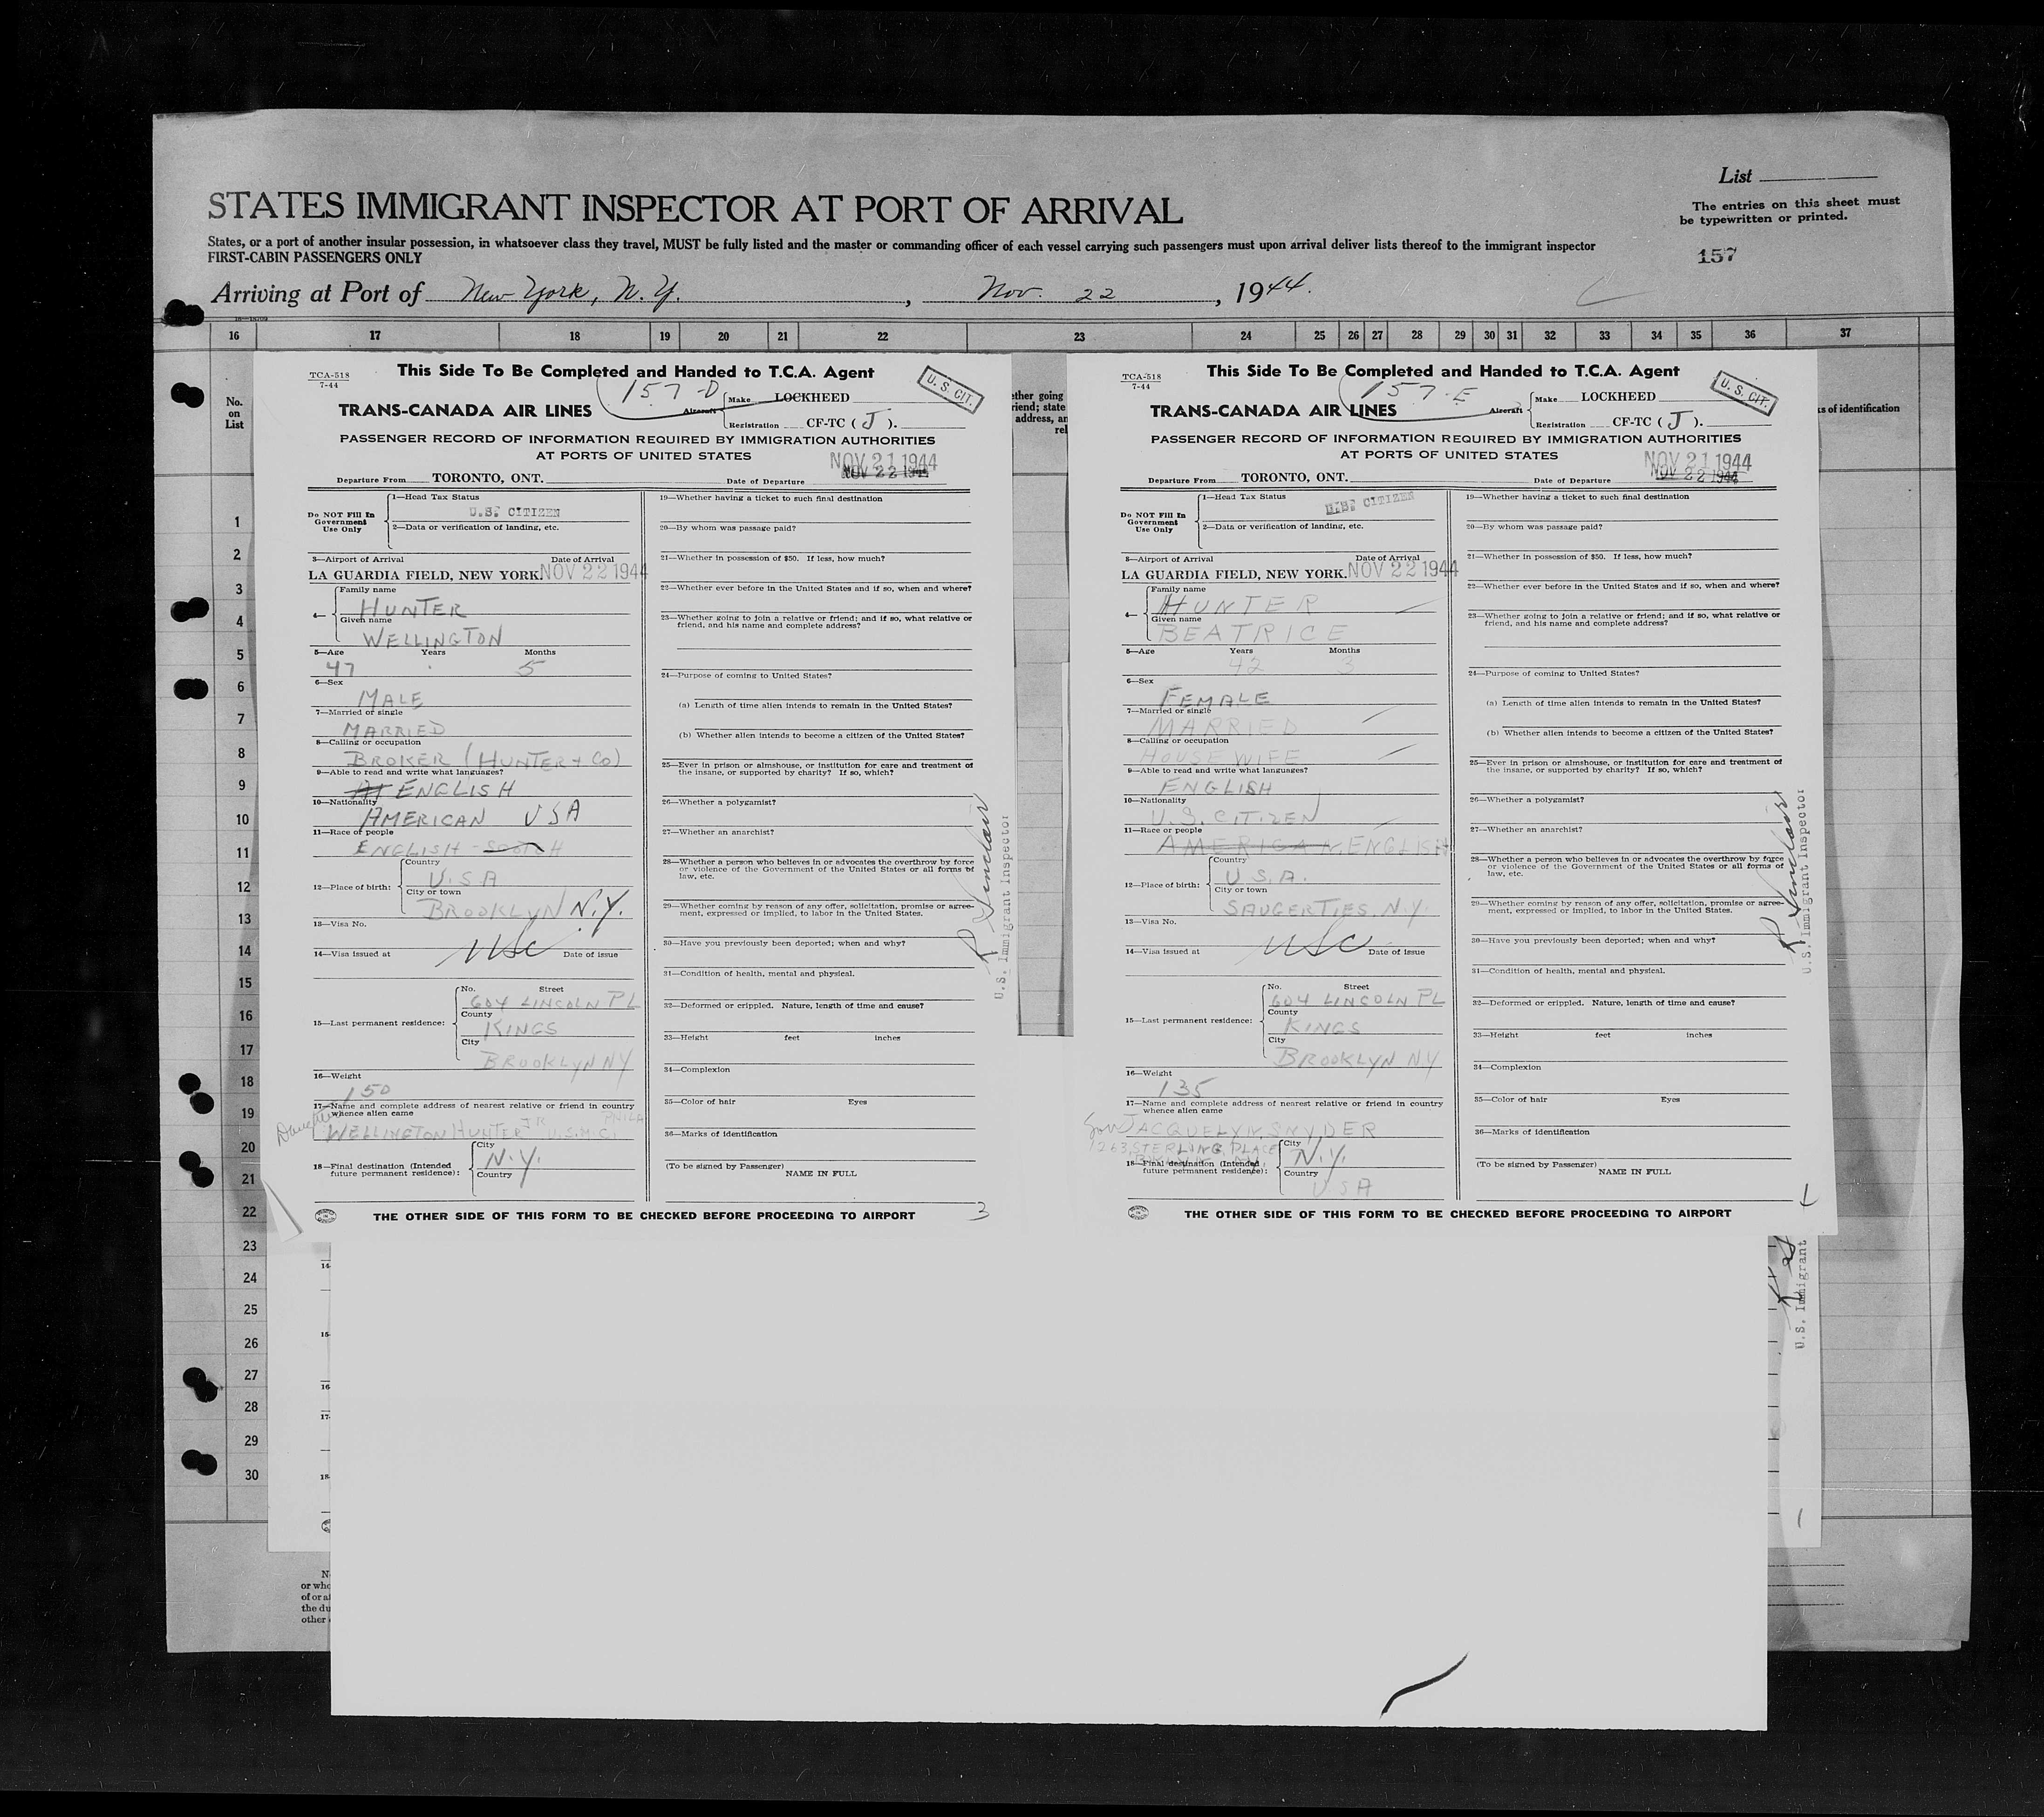 List
The entries on this sheet must
be typewritten or printed.
STATES IMMIGRANT INSPECTOR AT PORT OF ARRIVAL
States, or a port of another insular possession, in whatsoever class they travel, MUST be fully listed and the master or commanding officer of each vessel carrying such passengers must upon arrival deliver lists thereof to the immigrant inspector
FIRST-CABIN PASSENGERS ONLY
157
Arriving at Port of New York, N.Y., Nov. 22, 1944.
16 17 18 19 20 21 22 23 24 25 26 27 28 29 30 31 32 33 34 35 36 37
No.
on
List
1
2
3
4
5
6
7
8
9
10
11
12
13
14
15
16
17
18
19
20
21
22
23
24
25
26
27
28
29
30
TCA-518
7-44
This Side To Be Completed and Handed to T.C.A. Agent
157-D
U. S. CIT.
TRANS-CANADA AIR LINES
Aircraft
Make LOCKHEED
Registration CF-TC ( J ).
PASSENGER RECORD OF INFORMATION REQUIRED BY IMMIGRATION AUTHORITIES
AT PORTS OF UNITED STATES
NOV 21 1944
Departure From TORONTO, ONT. Date of Departure NOV 22 1944
Do NOT Fill In
Government
Use Only
1—Head Tax Status
U.S. CITIZEN
2—Data or verification of landing, etc.
3—Airport of Arrival Date of Arrival
LA GUARDIA FIELD, NEW YORK. NOV 22 1944
4—
Family name
HUNTER
Given name
WELLINGTON
5—Age Years Months
47 5
6—Sex
MALE
7—Married or single
MARRIED
8—Calling or occupation
BROKER (HUNTER + CO)
9—Able to read and write what languages?
ENGLISH
10—Nationality
AMERICAN USA
11—Race or people
ENGLISH - SCOTCH
12—Place of birth:
Country
U.S.A
City or town
BROOKLYN N.Y.
13—Visa No.
USC
14—Visa issued at Date of issue
15—Last permanent residence:
No. Street
604 LINCOLN PL
County
KINGS
City
BROOKLYN NY
16—Weight
150
17—Name and complete address of nearest relative or friend in country
whence alien came
Daughter
WELLINGTON HUNTER JR U.S.M.C. PHILA
18—Final destination (Intended
future permanent residence):
City
N.Y.
Country
19—Whether having a ticket to such final destination
20—By whom was passage paid?
21—Whether in possession of $50. If less, how much?
22—Whether ever before in the United States and if so, when and where?
23—Whether going to join a relative or friend; and if so, what relative or
friend, and his name and complete address?
24—Purpose of coming to United States?
(a) Length of time alien intends to remain in the United States?
(b) Whether alien intends to become a citizen of the United States?
25—Ever in prison or almshouse, or institution for care and treatment of
the insane, or supported by charity? If so, which?
26—Whether a polygamist?
27—Whether an anarchist?
28—Whether a person who believes in or advocates the overthrow by force
or violence of the Government of the United States or all forms of
law, etc.
29—Whether coming by reason of any offer, solicitation, promise or agree-
ment, expressed or implied, to labor in the United States.
30—Have you previously been deported; when and why?
31—Condition of health, mental and physical.
32—Deformed or crippled. Nature, length of time and cause?
33—Height feet inches
34—Complexion
35—Color of hair Eyes
36—Marks of identification
(To be signed by Passenger)
NAME IN FULL
R Sinclair
U.S. Immigrant Inspector
THE OTHER SIDE OF THIS FORM TO BE CHECKED BEFORE PROCEEDING TO AIRPORT
3
ether going
riend; state
address, an
rel
TCA-518
7-44
This Side To Be Completed and Handed to T.C.A. Agent
157-E
U. S. CIT.
TRANS-CANADA AIR LINES
Aircraft
Make LOCKHEED
Registration CF-TC ( J ).
PASSENGER RECORD OF INFORMATION REQUIRED BY IMMIGRATION AUTHORITIES
AT PORTS OF UNITED STATES
NOV 21 1944
Departure From TORONTO, ONT. Date of Departure NOV 22 1944
Do NOT Fill In
Government
Use Only
1—Head Tax Status
U.S. CITIZEN
2—Data or verification of landing, etc.
3—Airport of Arrival Date of Arrival
LA GUARDIA FIELD, NEW YORK. NOV 22 1944
4—
Family name
HUNTER
Given name
BEATRICE
5—Age Years Months
42 3
6—Sex
FEMALE
7—Married or single
MARRIED
8—Calling or occupation
HOUSEWIFE
9—Able to read and write what languages?
ENGLISH
10—Nationality
U.S. CITIZEN
11—Race or people
AMERICAN, ENGLISH
12—Place of birth:
Country
U.S.A.
City or town
SAUGERTIES, N.Y.
13—Visa No.
USC
14—Visa issued at Date of issue
15—Last permanent residence:
No. Street
604 LINCOLN PL
County
KINGS
City
BROOKLYN N.Y
16—Weight
135
17—Name and complete address of nearest relative or friend in country
whence alien came
JACQUELYN SNYDER
1263 STERLING PLACE
18—Final destination (Intended
future permanent residence):
City
N.Y.
Country
USA
19—Whether having a ticket to such final destination
20—By whom was passage paid?
21—Whether in possession of $50. If less, how much?
22—Whether ever before in the United States and if so, when and where?
23—Whether going to join a relative or friend; and if so, what relative or
friend, and his name and complete address?
24—Purpose of coming to United States?
(a) Length of time alien intends to remain in the United States?
(b) Whether alien intends to become a citizen of the United States?
25—Ever in prison or almshouse, or institution for care and treatment of
the insane, or supported by charity? If so, which?
26—Whether a polygamist?
27—Whether an anarchist?
28—Whether a person who believes in or advocates the overthrow by force
or violence of the Government of the United States or all forms of
law, etc.
29—Whether coming by reason of any offer, solicitation, promise or agree-
ment, expressed or implied, to labor in the United States.
30—Have you previously been deported; when and why?
31—Condition of health, mental and physical.
32—Deformed or crippled. Nature, length of time and cause?
33—Height feet inches
34—Complexion
35—Color of hair Eyes
36—Marks of identification
(To be signed by Passenger)
NAME IN FULL
R Sinclair
U.S. Immigrant Inspector
THE OTHER SIDE OF THIS FORM TO BE CHECKED BEFORE PROCEEDING TO AIRPORT
ks of identification
U.S. Immigrant
14-
15-
16
17-
18-
N
or who
of or a
the du
other